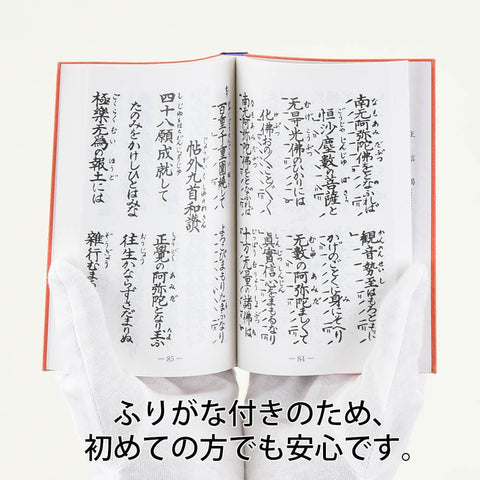 正信偈
南无阿弥陀佛をとなふれば
観音勢至はもろともに
恒沙塵數の菩薩と
かげのごとくに身にそへり
无导光佛のひかりには
无數の阿弥陀ましまして
化佛おの〱ことごとく
眞實信心をまもるなり
南无阿弥陀佛をとなふれば
十方无量の諸佛は
— 84 —
百重千重圍繞して
よろこびまもりたまふなり
帖外九首和讃
四十八願成就して
正覺の阿弥陀となり玉ふ
たのみをかけしひとはみな
往生かならずさだまりぬ
極樂无爲の報土には
雜行むま
— 85 —
ふりがな付きのため、
初めての方でも安心です。